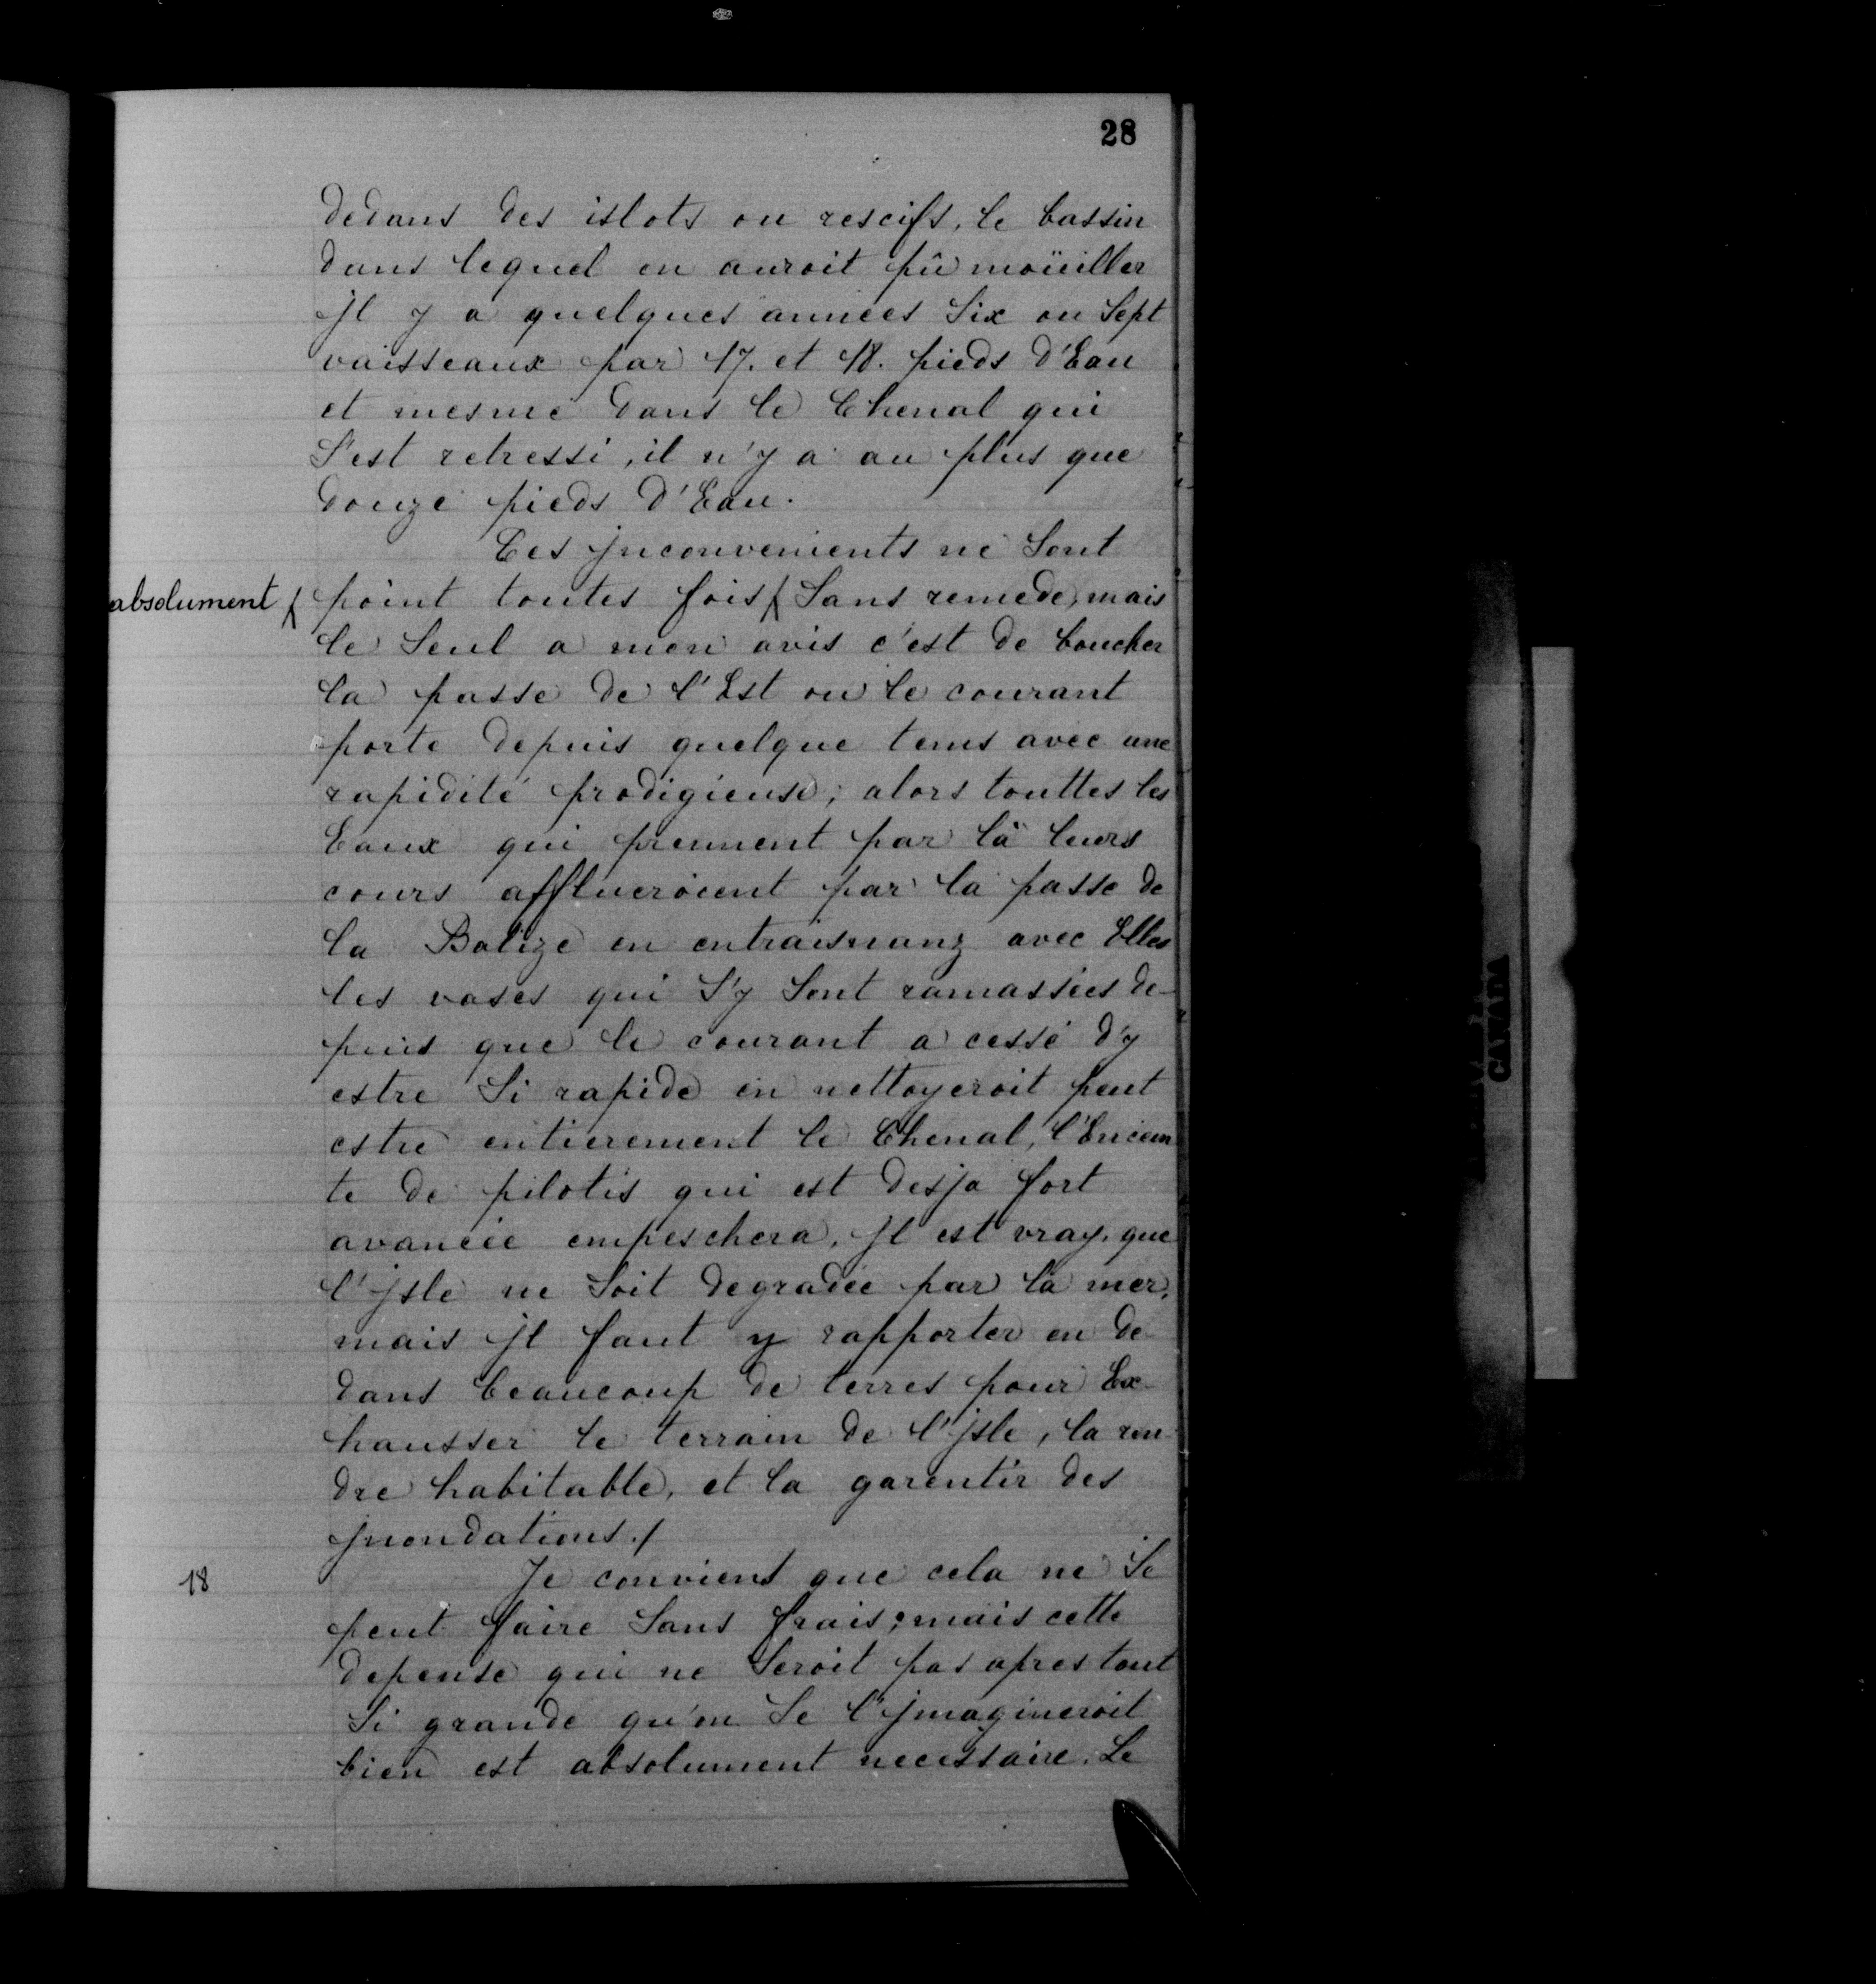 28
dedans des islots ou rescifs, le bassin
dans lequel on auroit pû moüiller
Jl y a quelques années Six ou Sept
vaisseaux par 17. et 18. pieds d'Eau
et mesme dans le Chenal qui
S'est retressi, il n'y a au plus que
douze pieds d'Eau.
Ces jnconvenients ne Sont
absolument / point toutes fois / Sans remede, mais
le Seul a mon avis c'est de boucher
la passe de l'Est ou le courant
porte depuis quelque tems avec une
rapidité prodigieuse; alors touttes les
Eaux qui prennent par là leurs
cours afflueroient par la passe de
la Balize en entraisnanz avec Elles
les vases qui S'y Sont ramassées de-
puis que le courant a cessé d'y
estre Si rapide en nettoyeroit peut
estre entierement le Chenal, l'Encein
te de pilotis qui est desja fort
avancée empeschera, Jl est vray, que
l'jsle ne Soit degradée par la mer,
mais Jl faut y rapporter en de
dans beaucoup de terres pour Ex-
hausser le terrain de l'jsle, la ren-
dre habitable, et la garentir des
jnondations./
18
Je conviens que cela ne Se
peut faire Sans frais; mais cette
depense qui ne Seroit pas apres tout
Si grande qu'on Se l'jmagineroit
bien est absolument necessaire. Le
CANADA